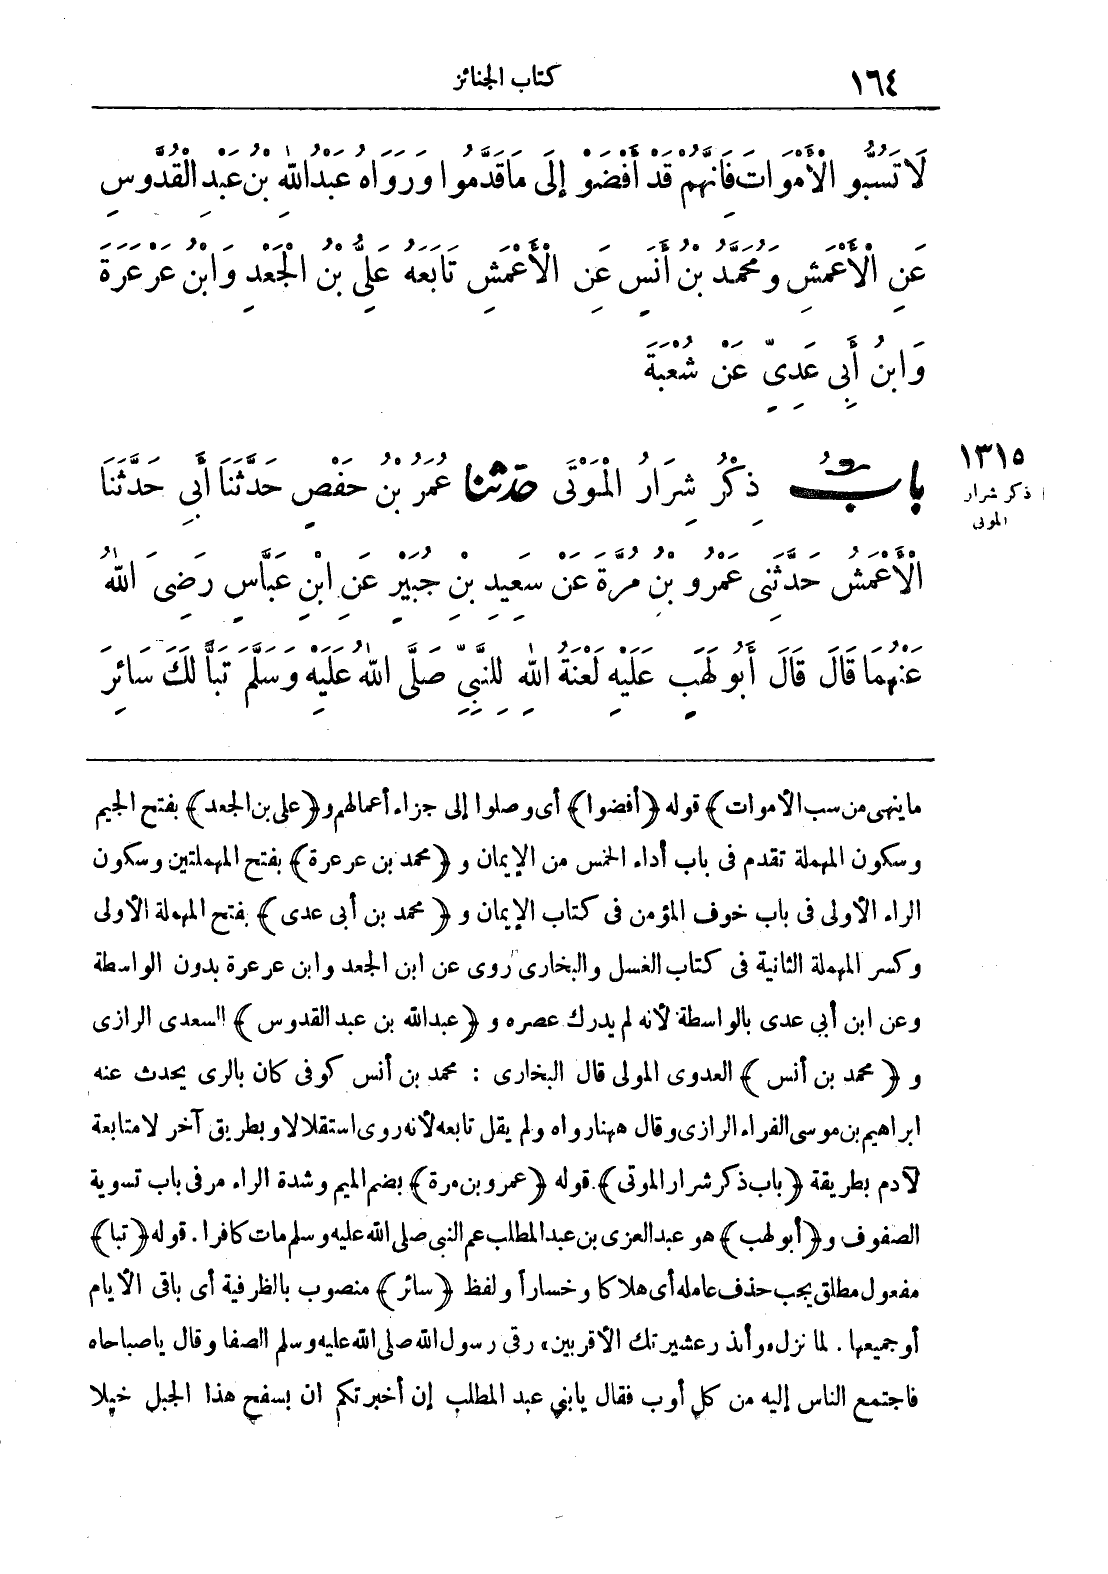 ١٦٤ كتاب الجنائز
لَا تَسُبُّوا الْأَمْوَاتَ فَإِنَّهُمْ قَدْ أَفْضَوْا إِلَى مَا قَدَّمُوا وَرَوَاهُ عَبْدُ اللهِ بْنُ عَبْدِ الْقُدُّوسِ
عَنِ الْأَعْمَشِ وَمُحَمَّدُ بْنُ أَنَسٍ عَنِ الْأَعْمَشِ تَابَعَهُ عَلِيُّ بْنُ الْجَعْدِ وَابْنُ عَرْعَرَةَ
وَابْنُ أَبِى عَدِىٍّ عَنْ شُعْبَةَ
١٣١٥
ذكر شرار
الموتى
بَابُ ذِكْرُ شِرَارِ الْمَوْتَى حَدَّثَنَا عُمَرُ بْنُ حَفْصٍ حَدَّثَنَا أَبِى حَدَّثَنَا
الْأَعْمَشُ حَدَّثَنِى عَمْرُو بْنُ مُرَّةَ عَنْ سَعِيدِ بْنِ جُبَيْرٍ عَنِ ابْنِ عَبَّاسٍ رَضِىَ اللهُ
عَنْهُمَا قَالَ قَالَ أَبُو لَهَبٍ عَلَيْهِ لَعْنَةُ اللهِ لِلنَّبِىِّ صَلَّى اللهُ عَلَيْهِ وَسَلَّمَ تَبًّا لَكَ سَائِرَ
ما ينهى من سب الأموات﴾ قوله ﴿أفضوا﴾ أى وصلوا إلى جزاء أعمالهم و﴿على بن الجعد﴾ بفتح الجيم
وسكون المهملة تقدم فى باب أداء الخمس من الإيمان و ﴿محمد بن عرعرة﴾ بفتح المهملتين وسكون
الراء الأولى فى باب خوف المؤمن فى كتاب الإيمان و ﴿ محمد بن أبى عدى﴾ بفتح المهملة الأولى
وكسر المهملة الثانية فى كتاب الغسل والبخارى روى عن ابن الجعد وابن عرعرة بدون الواسطة
وعن ابن أبي عدى بالواسطة لأنه لم يدرك عصره و ﴿عبدالله بن عبد القدوس﴾ السعدى الرازى
و ﴿ محمد بن أنس ﴾ العدوى المولى قال البخارى : محمد بن أنس كوفى كان بالرى يحدث عنه
ابراهيم بن موسى الفراء الرازى وقال ههنا رواه ولم يقل تابعه لأنه روى استقلالا وبطريق آخر لا متابعة
لآدم بطريقة ﴿باب ذكر شرار الموتى﴾. قوله ﴿عمرو بن مرة﴾ بضم الميم وشدة الراء مر فى باب تسوية
الصفوف و ﴿أبو لهب﴾ هو عبد العزى بن عبد المطلب عم النبى صلى الله عليه وسلم مات كافرا . قوله ﴿تبا﴾
مفعول مطلق يجب حذف عامله أى هلاكا وخساراً ولفظ ﴿سائر﴾ منصوب بالظرفية أى باقى الأيام
أو جميعها . لما نزل «وأنذر عشيرتك الأقربين» رقى رسول الله صلى الله عليه وسلم الصفا وقال ياصباحاه
فاجتمع الناس إليه من كل أوب فقال يابني عبد المطلب إن أخبرتكم ان بسفح هذا الجبل خيلا